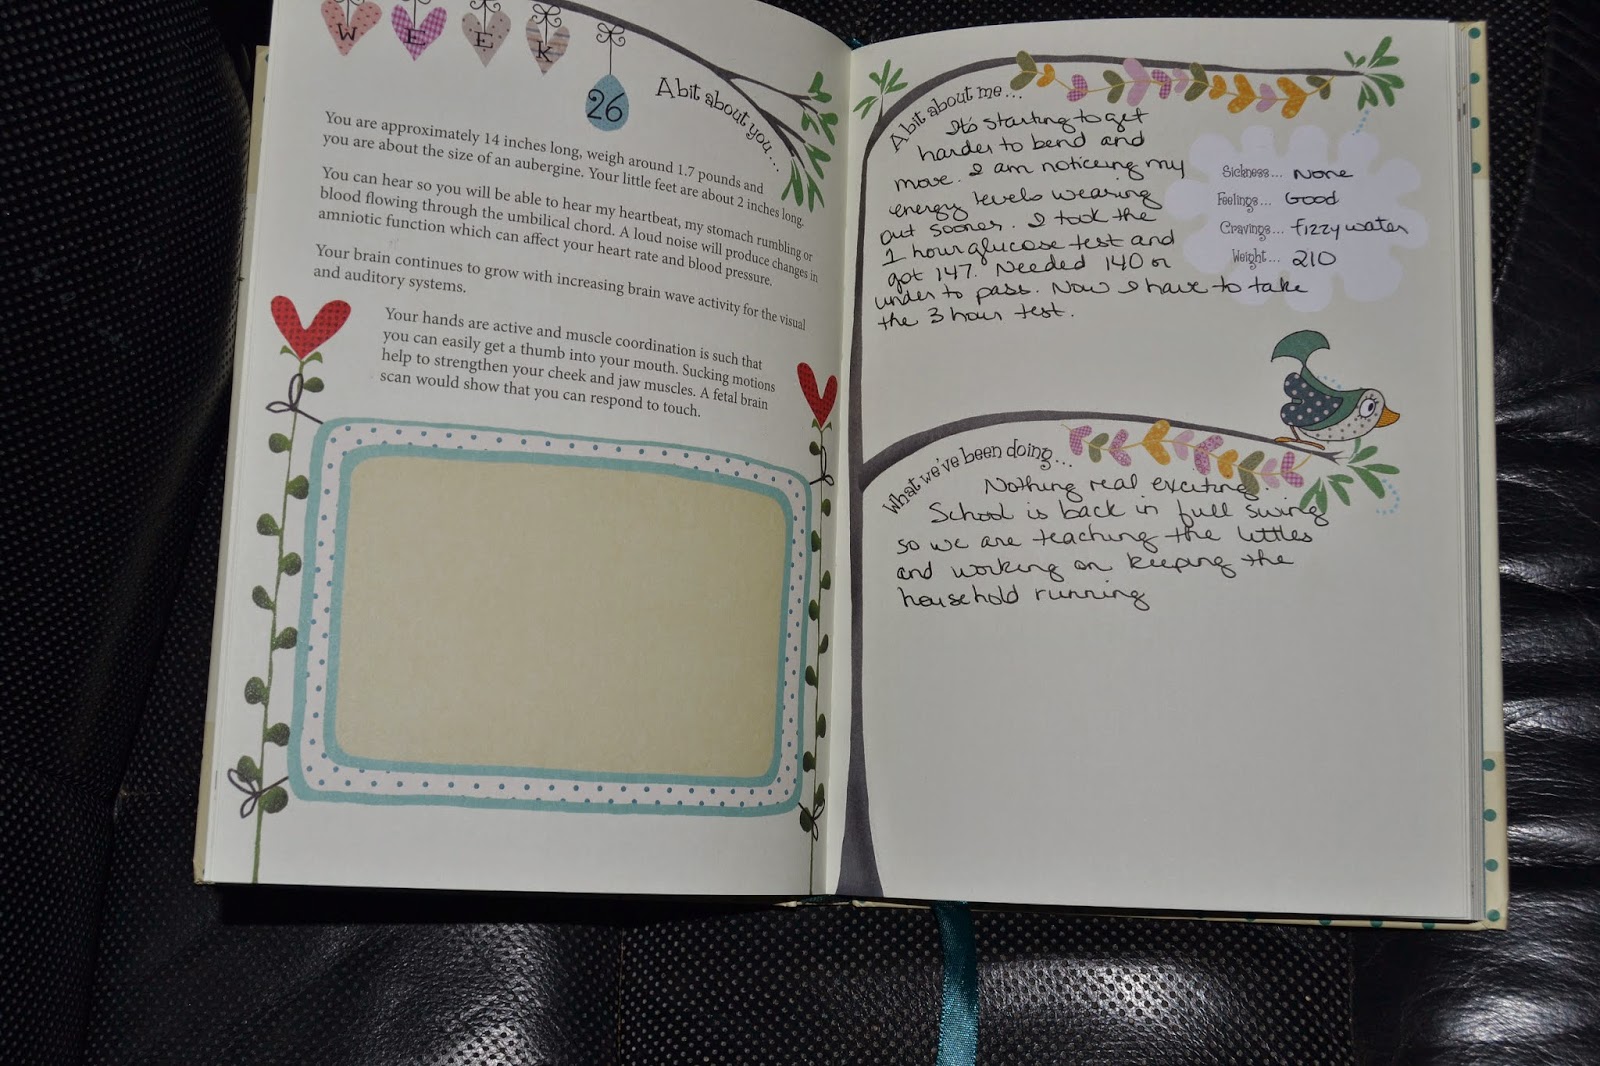 WEEK
26
A bit about you...
You are approximately 14 inches long, weigh around 1.7 pounds and
you are about the size of an aubergine. Your little feet are about 2 inches long.
You can hear so you will be able to hear my heartbeat, my stomach rumbling or
blood flowing through the umbilical chord. A loud noise will produce changes in
amniotic function which can affect your heart rate and blood pressure.
Your brain continues to grow with increasing brain wave activity for the visual
and auditory systems.
Your hands are active and muscle coordination is such that
you can easily get a thumb into your mouth. Sucking motions
help to strengthen your cheek and jaw muscles. A fetal brain
scan would show that you can respond to touch.
A bit about me...
It's starting to get
harder to bend and
move. I am noticing my
energy levels wearing
out sooner. I took the
1 hour glucose test and
got 147. Needed 140 or
under to pass. Now I have to take
the 3 hour test.
Sickness... None
Feelings... Good
Cravings... fizzy water
Weight... 210
What we've been doing...
Nothing real exciting.
School is back in full swing
so we are teaching the littles
and working on keeping the
household running